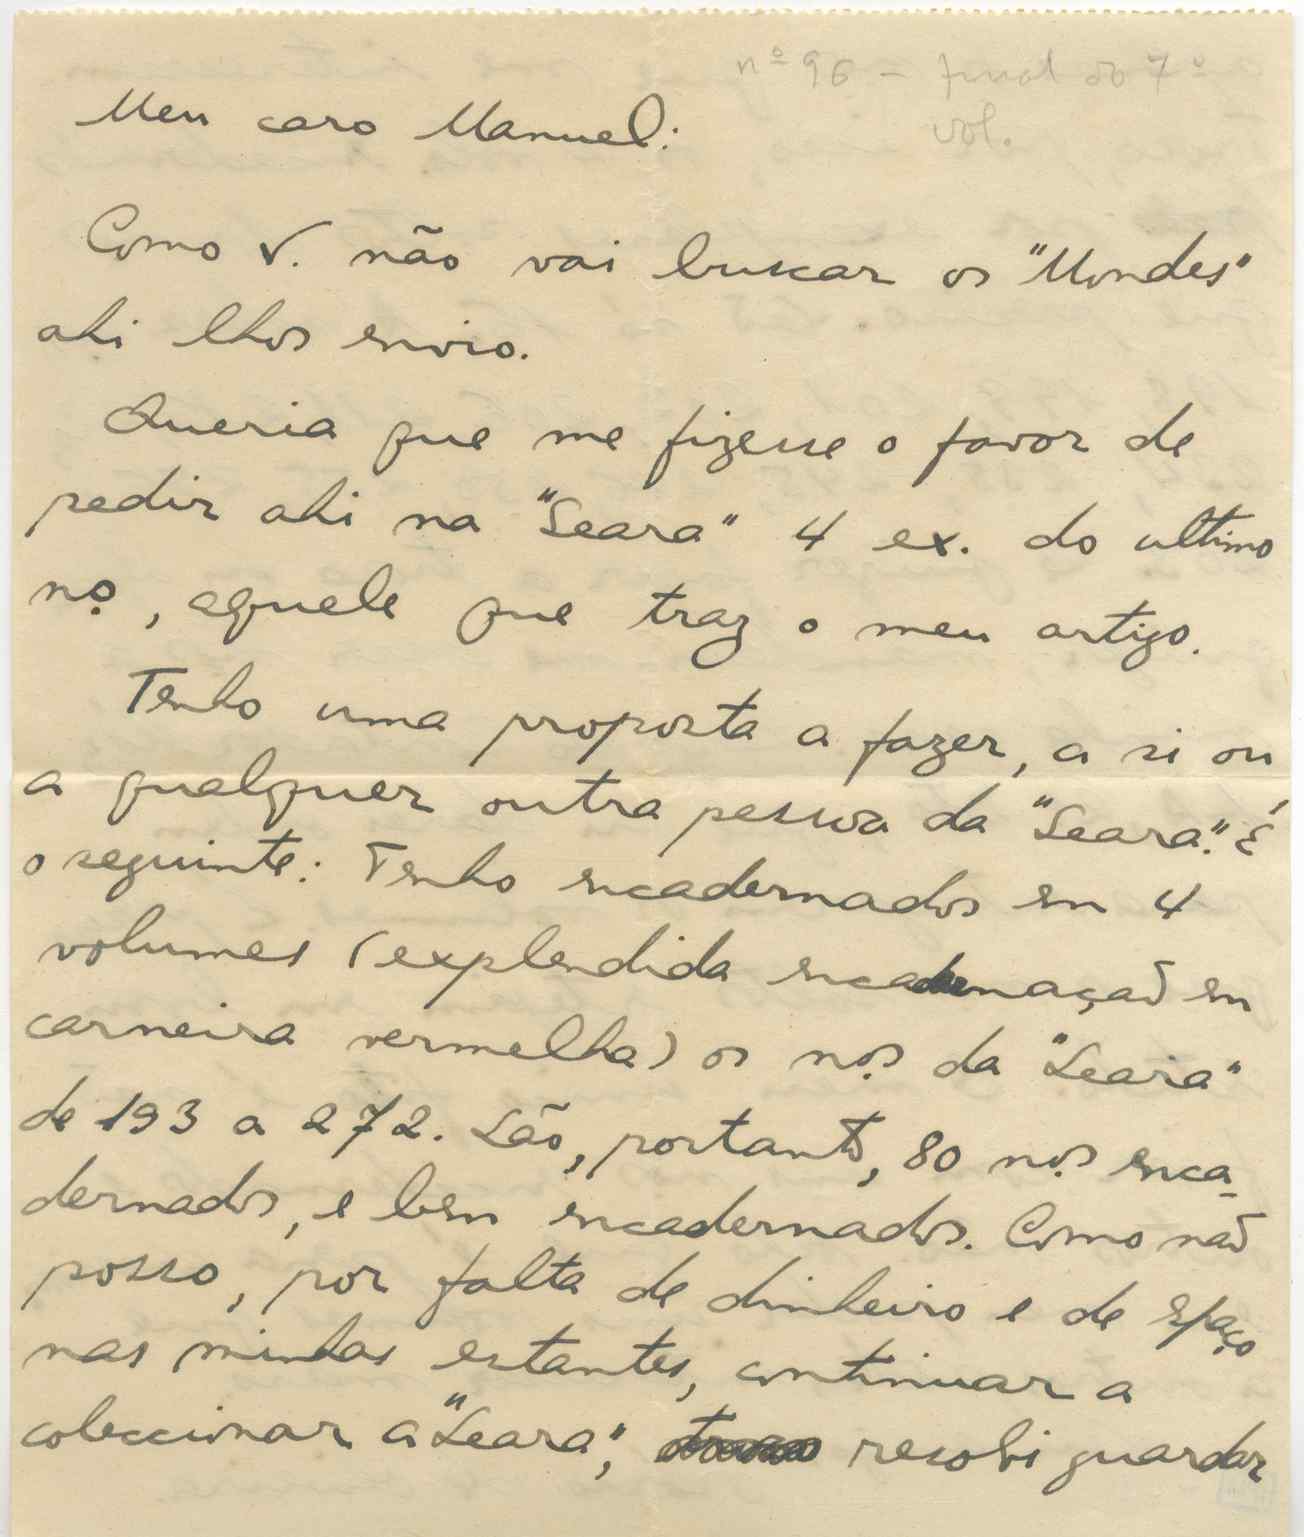 nº 96 — final do 7º
vol.
Meu caro Manuel:
Como V. não vai buscar os "Mondes"
ahi lhos envio.
Queria que me fizesse o favor de
pedir ahi na "Seara" 4 ex. do ultimo
nº, aquele que traz o meu artigo.
Tenho uma proposta a fazer, a si ou
a qualquer outra pessoa da "Seara". É
o seguinte: Tenho encadernados em 4
volumes (explendida encadernação em
carneira vermelha) os nºs da "Seara"
de 193 a 272. São, portanto, 80 nºs enca-
dernados, e bem encadernados. Como não
posso, por falta de dinheiro e de espaço
nas minhas estantes, continuar a
coleccionar a "Seara", resolvi guardar